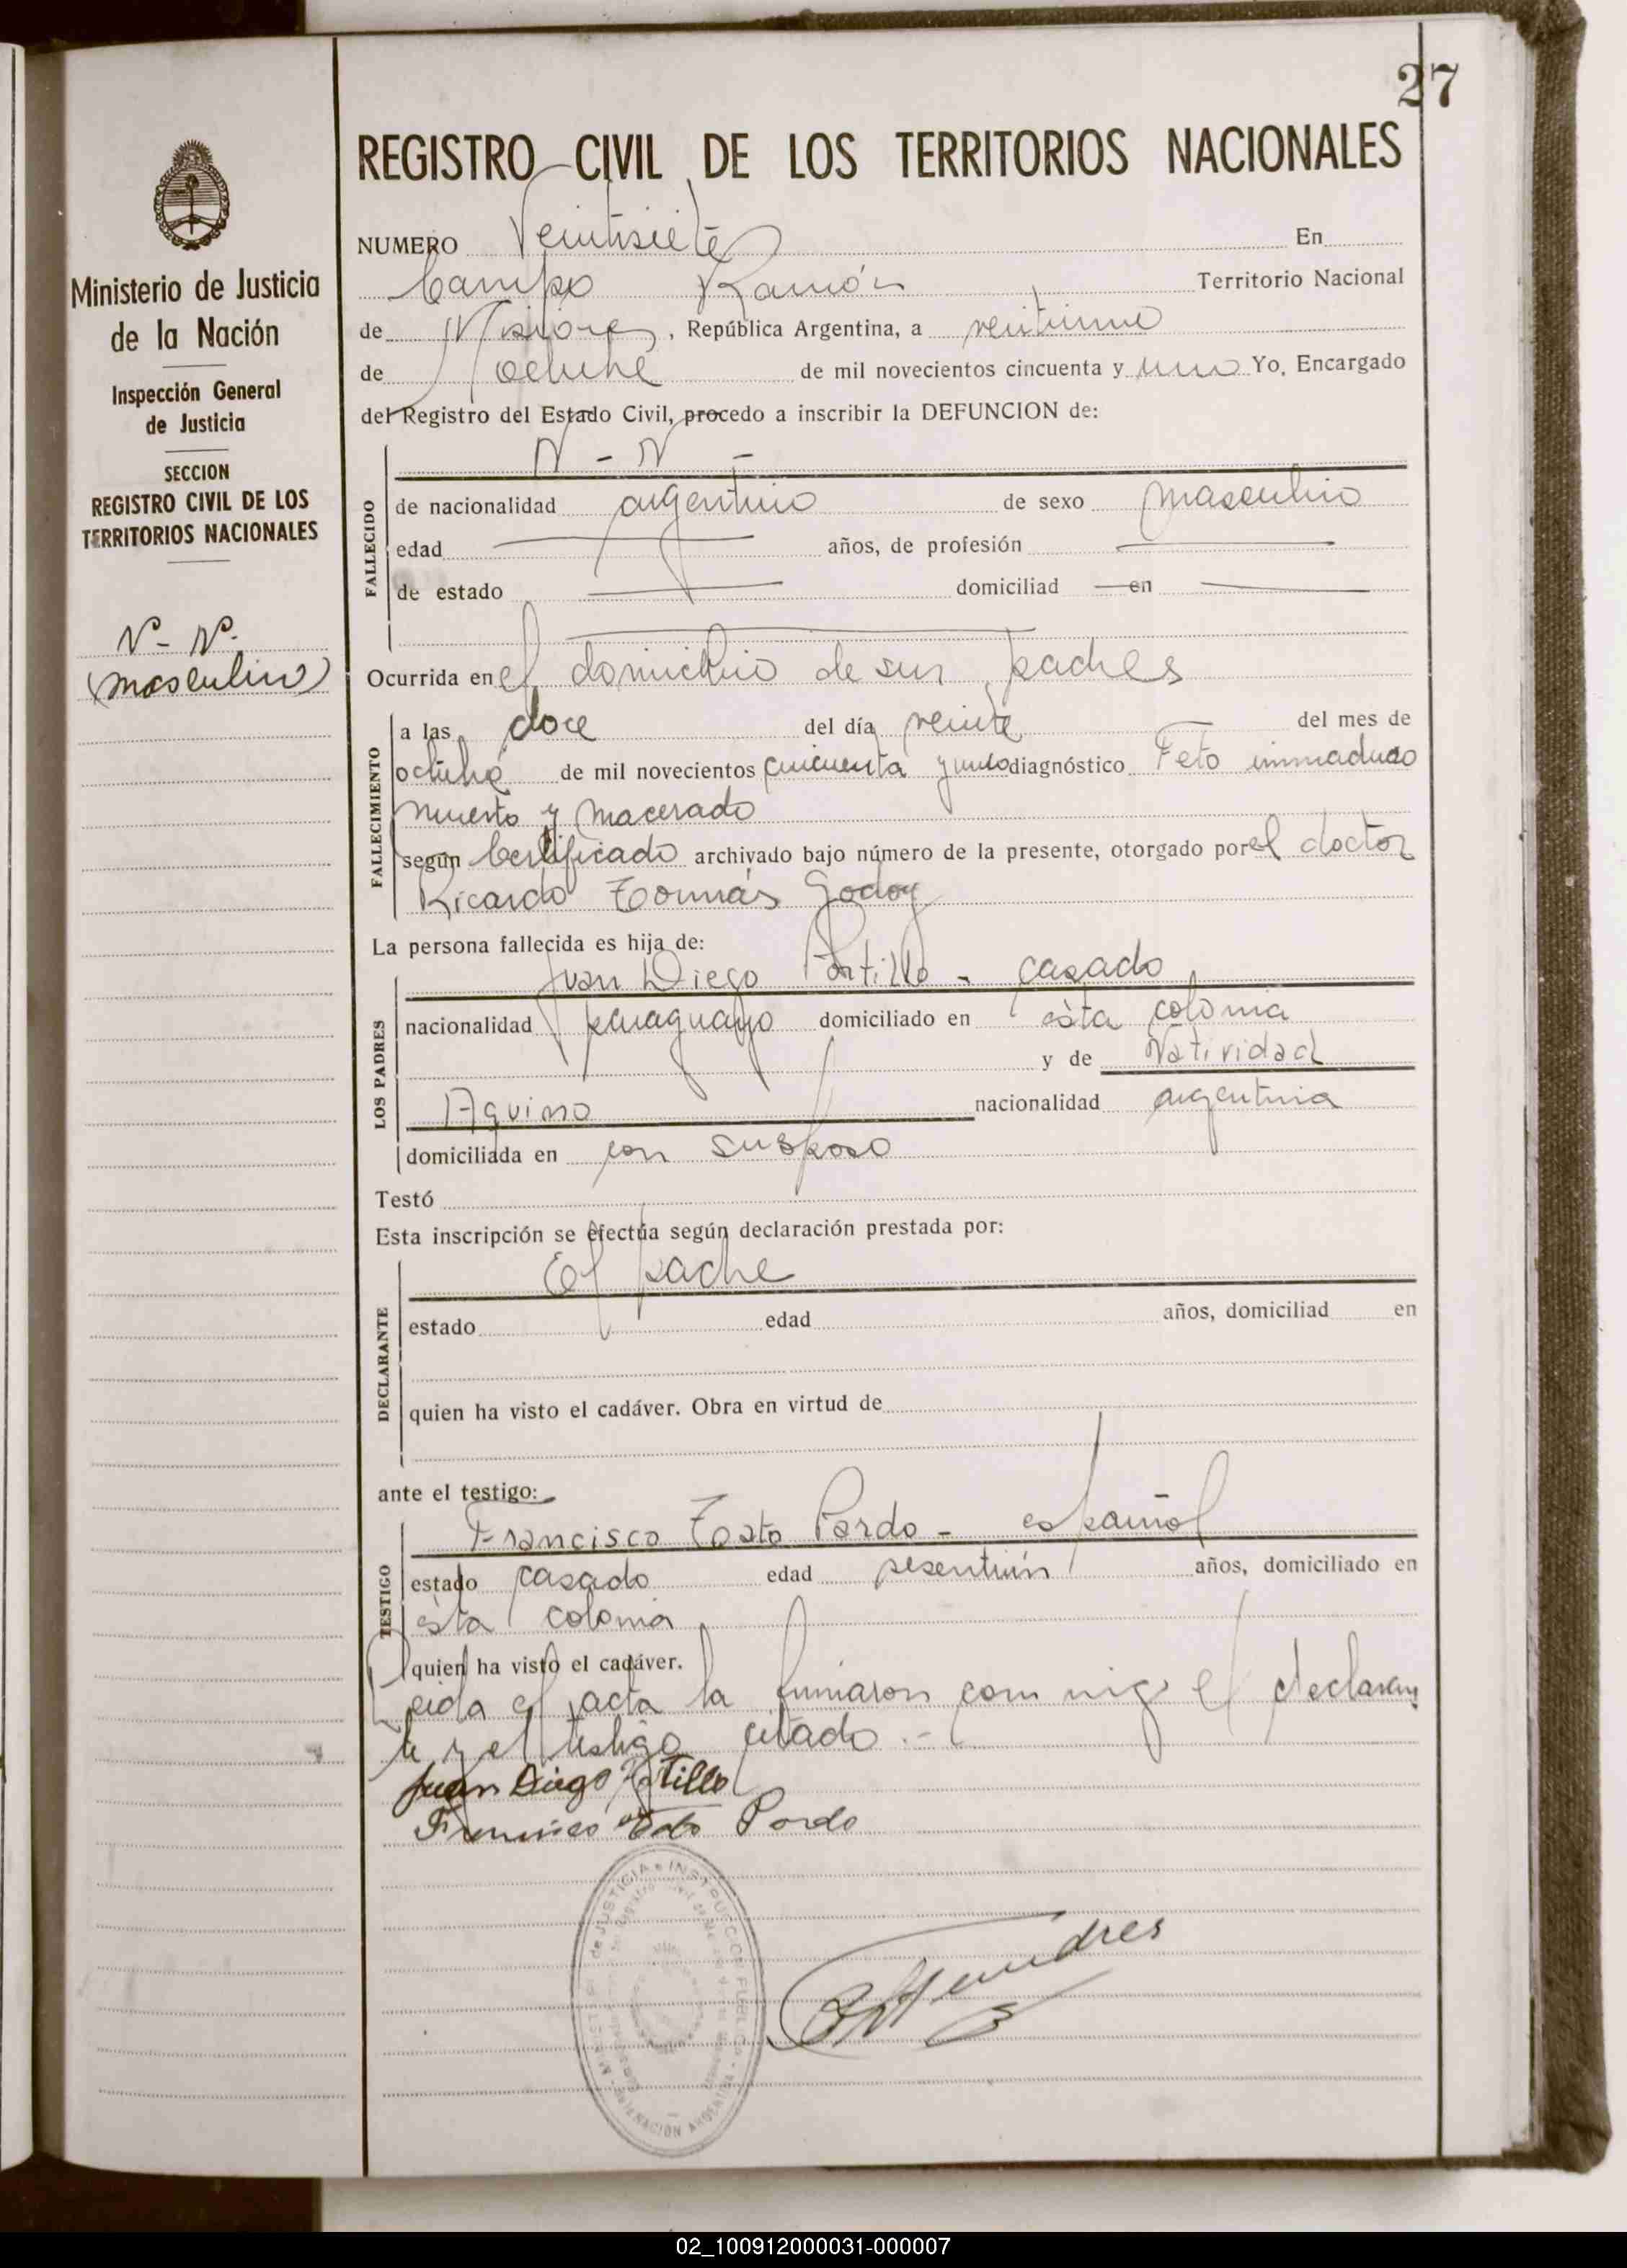 27
Ministerio de Justicia
de la Nación
Inspección General
de Justicia
SECCION
REGISTRO CIVIL DE LOS
TERRITORIOS NACIONALES
N - N.
(masculino)
REGISTRO CIVIL DE LOS TERRITORIOS NACIONALES
NUMERO Veintisiete En
Campo Ramón Territorio Nacional
de Misiones, República Argentina, a veintiuno
de octubre de mil novecientos cincuenta y uno Yo, Encargado
del Registro del Estado Civil, procedo a inscribir la DEFUNCION de:
N - N -
FALLECIDO
de nacionalidad argentino de sexo masculino
edad años, de profesión
de estado domiciliad en
Ocurrida en el domicilio de sus padres
FALLECIMIENTO
a las doce del día veinte del mes de
octubre de mil novecientos cincuenta y uno diagnóstico Feto inmaduro
muerto y macerado
según Certificado archivado bajo número de la presente, otorgado por el doctor
Ricardo Tomás Godoy
La persona fallecida es hija de:
LOS PADRES
Juan Diego Portillo - casado
nacionalidad paraguayo domiciliado en ésta colonia
y de Natividad
Aquino nacionalidad argentina
domiciliada en con su esposo
Testó
Esta inscripción se efectúa según declaración prestada por:
DECLARANTE
El padre
estado edad años, domiciliad en
quien ha visto el cadáver. Obra en virtud de
ante el testigo:
TESTIGO
Francisco Toato Pardo - español
estado casado edad sesentiún años, domiciliado en
ésta colonia
quien ha visto el cadáver.
Leida el acta la firmaron con migo el declaran
te y el testigo citado. -
Juan Diego Portillo
Francisco Pardo
02_100912000031-000007